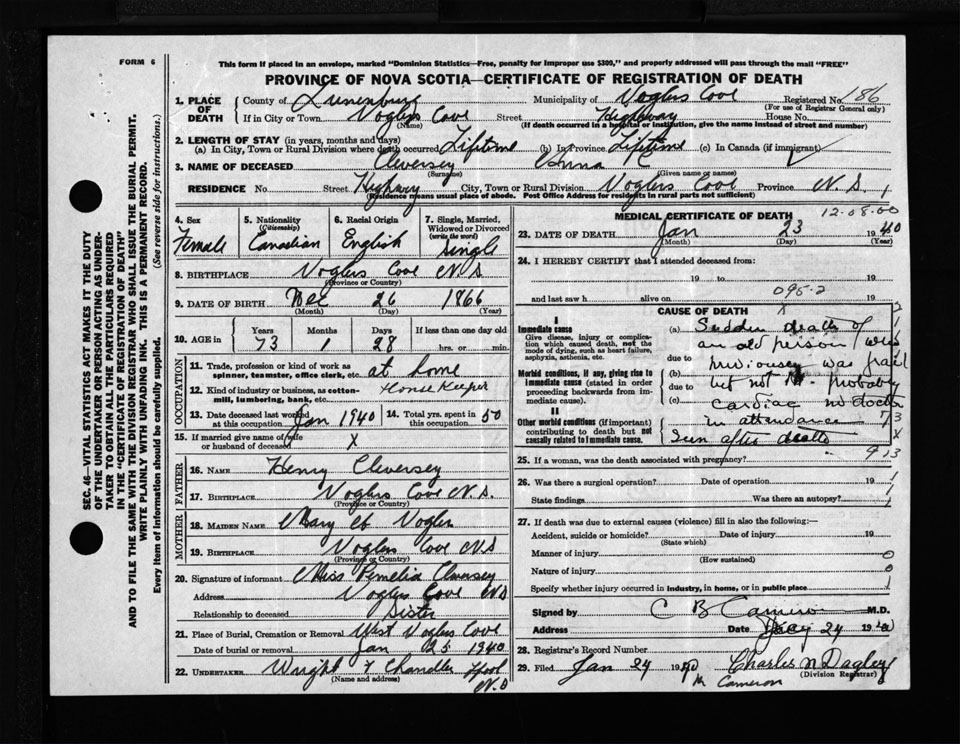 FORM 6
This form if placed in an envelope, marked "Dominion Statistics—Free, penalty for improper use $300," and properly addressed will pass through the mail "FREE"
PROVINCE OF NOVA SCOTIA—CERTIFICATE OF REGISTRATION OF DEATH
SEC. 46—VITAL STATISTICS ACT MAKES IT THE DUTY OF THE UNDERTAKER OR PERSON ACTING AS UNDERTAKER TO OBTAIN ALL THE PARTICULARS REQUIRED IN THE "CERTIFICATE OF REGISTRATION OF DEATH" AND TO FILE THE SAME WITH THE DIVISION REGISTRAR WHO SHALL ISSUE THE BURIAL PERMIT.
WRITE PLAINLY WITH UNFADING INK. THIS IS A PERMANENT RECORD.
Every item of information should be carefully supplied. (See reverse side for instructions.)
1. PLACE OF DEATH County of Lunenburg Municipality of Voglers Cove Registered No. 86
(For use of Registrar General only)
If in City or Town Voglers Cove Street Highway House No.
(Name) (If death occurred in a hospital or institution, give the name instead of street and number)
2. LENGTH OF STAY (in years, months and days)
(a) In City, Town or Rural Division where death occurred Lifetime (b) In Province Lifetime (c) In Canada (if immigrant)
3. NAME OF DECEASED Cleversey Anna C
(Surname) (Given name or names)
RESIDENCE No. Street Highway City, Town or Rural Division Voglers Cove Province N.S.
(Residence means usual place of abode. Post Office Address for residents in rural parts not sufficient)
4. Sex Female
5. Nationality (Citizenship) Canadian
6. Racial Origin English
7. Single, Married, Widowed or Divorced (write the word) Single
8. BIRTHPLACE Voglers Cove N.S
(Province or Country)
9. DATE OF BIRTH Dec 26 1866
(Month) (Day) (Year)
10. AGE in Years 73 Months 1 Days 28 If less than one day old hrs. or min.
OCCUPATION
11. Trade, profession or kind of work as spinner, teamster, office clerk, etc. at home
12. Kind of industry or business, as cotton-mill, lumbering, bank, etc. House Keeper
13. Date deceased last worked at this occupation Jan 1940 14. Total yrs. spent in this occupation 50
15. If married give name of wife or husband of deceased X
FATHER
16. NAME Henry Cleversey
17. BIRTHPLACE Voglers Cove N.S.
(Province or Country)
MOTHER
18. MAIDEN NAME Mary Vogler
19. BIRTHPLACE Voglers Cove N.S
(Province or Country)
20. Signature of informant Miss Pemelia Cleversey
Address Voglers Cove N.S
Relationship to deceased Sister
21. Place of Burial, Cremation or Removal West Voglers Cove
Date of burial or removal Jan 25 1940
22. UNDERTAKER Wright & Chandler Lpool N.S
(Name and address)
MEDICAL CERTIFICATE OF DEATH 12-08-00
23. DATE OF DEATH Jan 23 1940
(Month) (Day) (Year)
24. I HEREBY CERTIFY that I attended deceased from:
19 to 19
and last saw h alive on 19
095-2
CAUSE OF DEATH
I
Immediate cause
Give disease, injury or complication which caused death, not the mode of dying, such as heart failure, asphyxia, asthenia, etc.
Morbid conditions, if any, giving rise to immediate cause (stated in order proceeding backwards from immediate cause).
II
Other morbid conditions (if important) contributing to death but not causally related to immediate cause.
(a) Sudden death of
an old person
due to
(b) was frail
due to but not Probably
(c) cardiac no doctor
in attendance
Seen after death
25. If a woman, was the death associated with pregnancy?
26. Was there a surgical operation? Date of operation 19
State findings Was there an autopsy?
27. If death was due to external causes (violence) fill in also the following:—
Accident, suicide or homicide? Date of injury 19
(State which)
Manner of injury
(How sustained)
Nature of injury
Specify whether injury occurred in industry, in home, or in public place
Signed by C B Cameron M.D.
Address Date Jany 24 1940
28. Registrar's Record Number
29. Filed Jan 24 1940 Charles N Dagley
(Division Registrar)
Cameron